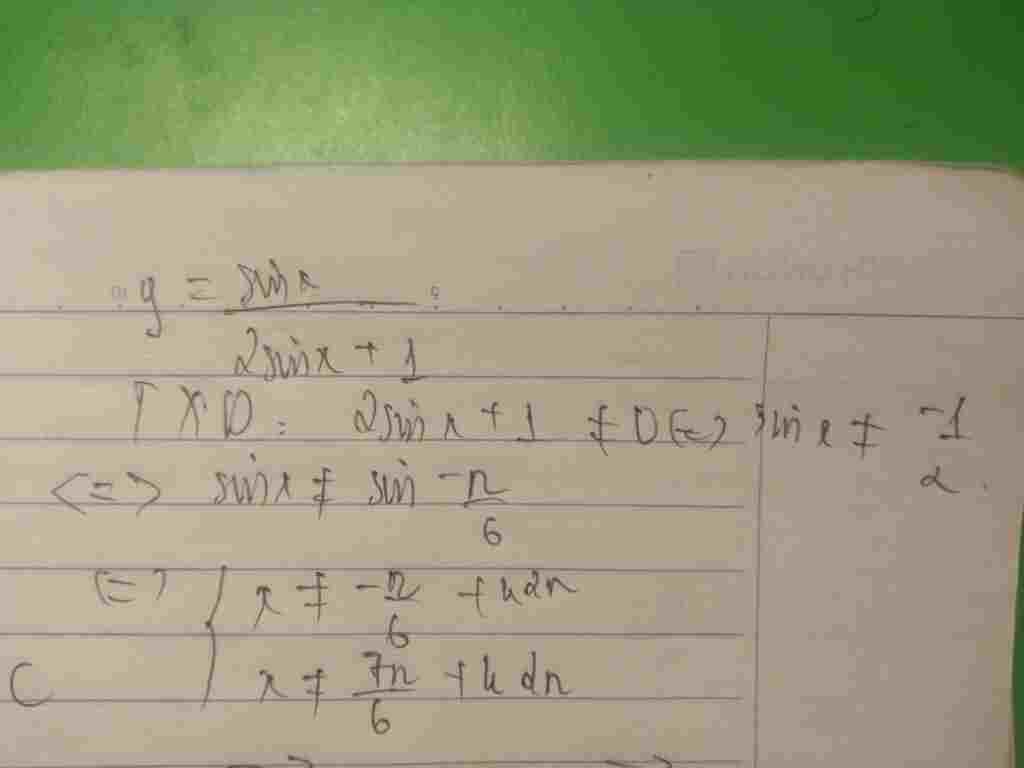 y = sinx
2sinx + 1
TXD: 2sinx + 1 ≠ 0 (=) sin x ≠ -1/2.
<=> sinx ≠ sin -π/6
(=) { x ≠ -π/6 + k2π
x ≠ 7π/6 + k2π
C